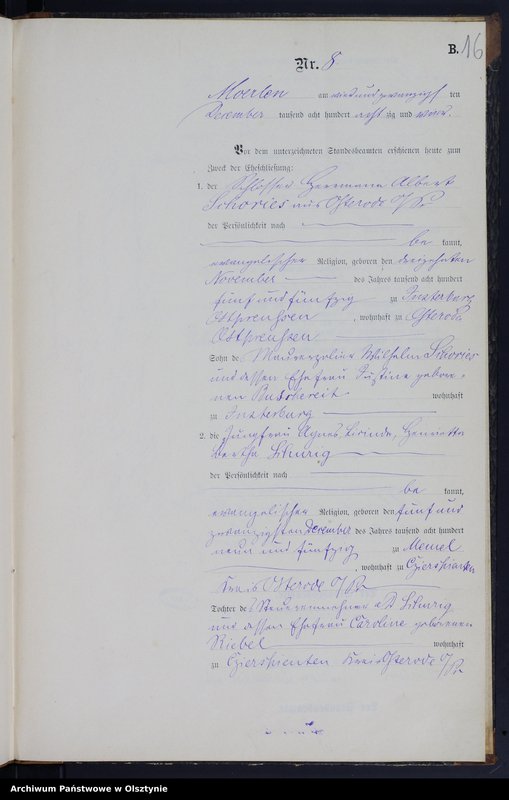 B. 16
Nr. 8.
Moerlen am vier und zwanzigsten
December tausend acht hundert achtzig und
Vor dem unterzeichneten Standesbeamten erschienen heute zum
Zweck der Eheschließung:
1. der Schlosser Herrmann Albert
Schories aus Osterode O/Pr
der Persönlichkeit nach
bekannt,
evangelischer Religion, geboren den dreizehnten
November des Jahres tausend acht hundert
fünf und fünfzig zu Insterburg
Ostpreußen, wohnhaft zu Osterode
Ostpreußen
Sohn des Maurerpolier Wilhelm Schories
und dessen Ehefrau Justine gebore-
nen wohnhaft
zu Insterburg
2. die Jungfrau Agnes Henriette
Bertha
der Persönlichkeit nach
bekannt,
evangelischer Religion, geboren den fünf und
zwanzigsten December des Jahres tausend acht hundert
neun und fünfzig zu Memel
, wohnhaft zu
Kreis Osterode O/Pr
Tochter des
und dessen Ehefrau Caroline geborenen
Riebel wohnhaft
zu Kreis Osterode O/Pr
Archiwum Państwowe w Olsztynie